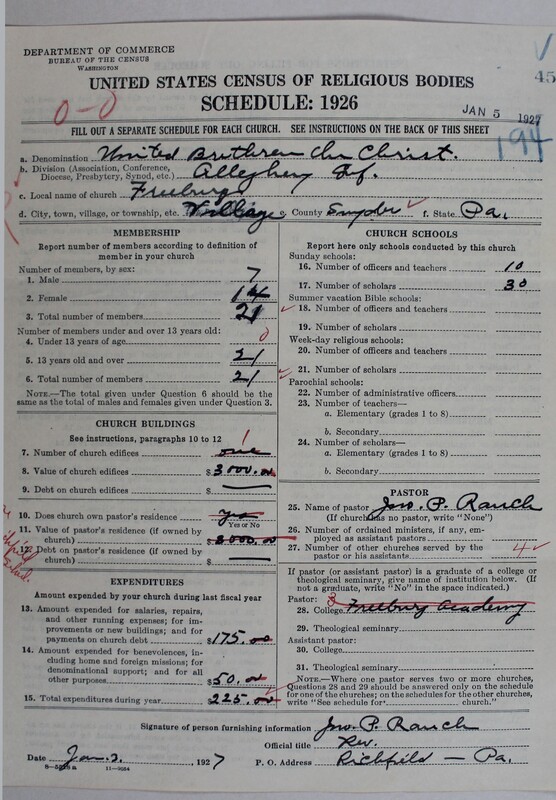 DEPARTMENT OF COMMERCE
BUREAU OF THE CENSUS
WASHINGTON
45
UNITED STATES CENSUS OF RELIGIOUS BODIES
SCHEDULE: 1926
0-0
JAN 5 1927
194
FILL OUT A SEPARATE SCHEDULE FOR EACH CHURCH. SEE INSTRUCTIONS ON THE BACK OF THIS SHEET
a. Denomination United Brethren Christ.
b. Division (Association, Conference, Diocese, Presbytery, Synod, etc.) Allegheny
c. Local name of church Freeburg
d. City, town, village, or township, etc. Village e. County Snyder f. State Pa.
MEMBERSHIP
Report number of members according to definition of
member in your church
Number of members, by sex:
1. Male 7
2. Female 14
3. Total number of members 21
Number of members under and over 13 years old:
4. Under 13 years of age 0
5. 13 years old and over 21
6. Total number of members 21
NOTE.—The total given under Question 6 should be
the same as the total of males and females given under Question 3.
CHURCH BUILDINGS
See instructions, paragraphs 10 to 12
7. Number of church edifices one 1
8. Value of church edifices $3000.00
9. Debt on church edifices $ —
10. Does church own pastor's residence Yes
Yes or No
11. Value of pastor's residence (if owned by
church) $3000.00
12. Debt on pastor's residence (if owned by
church) $ —
EXPENDITURES
Amount expended by your church during last fiscal year
13. Amount expended for salaries, repairs,
and other running expenses; for im-
provements or new buildings; and for
payments on church debt $175.00
14. Amount expended for benevolences,
including home and foreign missions; for
denominational support; and for all
other purposes $50.00
15. Total expenditures during year $225.00
CHURCH SCHOOLS
Report here only schools conducted by this church
Sunday schools:
16. Number of officers and teachers 10
17. Number of scholars 30
Summer vacation Bible schools:
18. Number of officers and teachers
19. Number of scholars
Week-day religious schools:
20. Number of officers and teachers
21. Number of scholars
Parochial schools:
22. Number of administrative officers
23. Number of teachers—
a. Elementary (grades 1 to 8)
b. Secondary
24. Number of scholars—
a. Elementary (grades 1 to 8)
b. Secondary
PASTOR
25. Name of pastor Jno. P. Rauch
(If church has no pastor, write "None")
26. Number of ordained ministers, if any, em-
ployed as assistant pastors
27. Number of other churches served by the
pastor or his assistants 4
If pastor (or assistant pastor) is a graduate of a college or
theological seminary, give name of institution below. (If
not a graduate, write "No" in the space indicated.)
Pastor:
28. College Freeburg Academy
29. Theological seminary
Assistant pastor:
30. College
31. Theological seminary
NOTE.—Where one pastor serves two or more churches,
Questions 28 and 29 should be answered only on the schedule
for one of the churches; on the schedules for the other churches,
write "See schedule for church."
Signature of person furnishing information Jno. P. Rauch
Official title Rev.
Date Jan. 2. 1927 P. O. Address Richfield — Pa.
11—9064